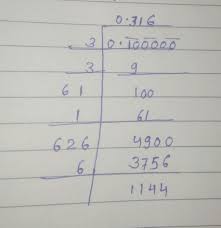 0.316
3 0.100000
3 9
61 100
1 61
626 4900
6 3756
1144